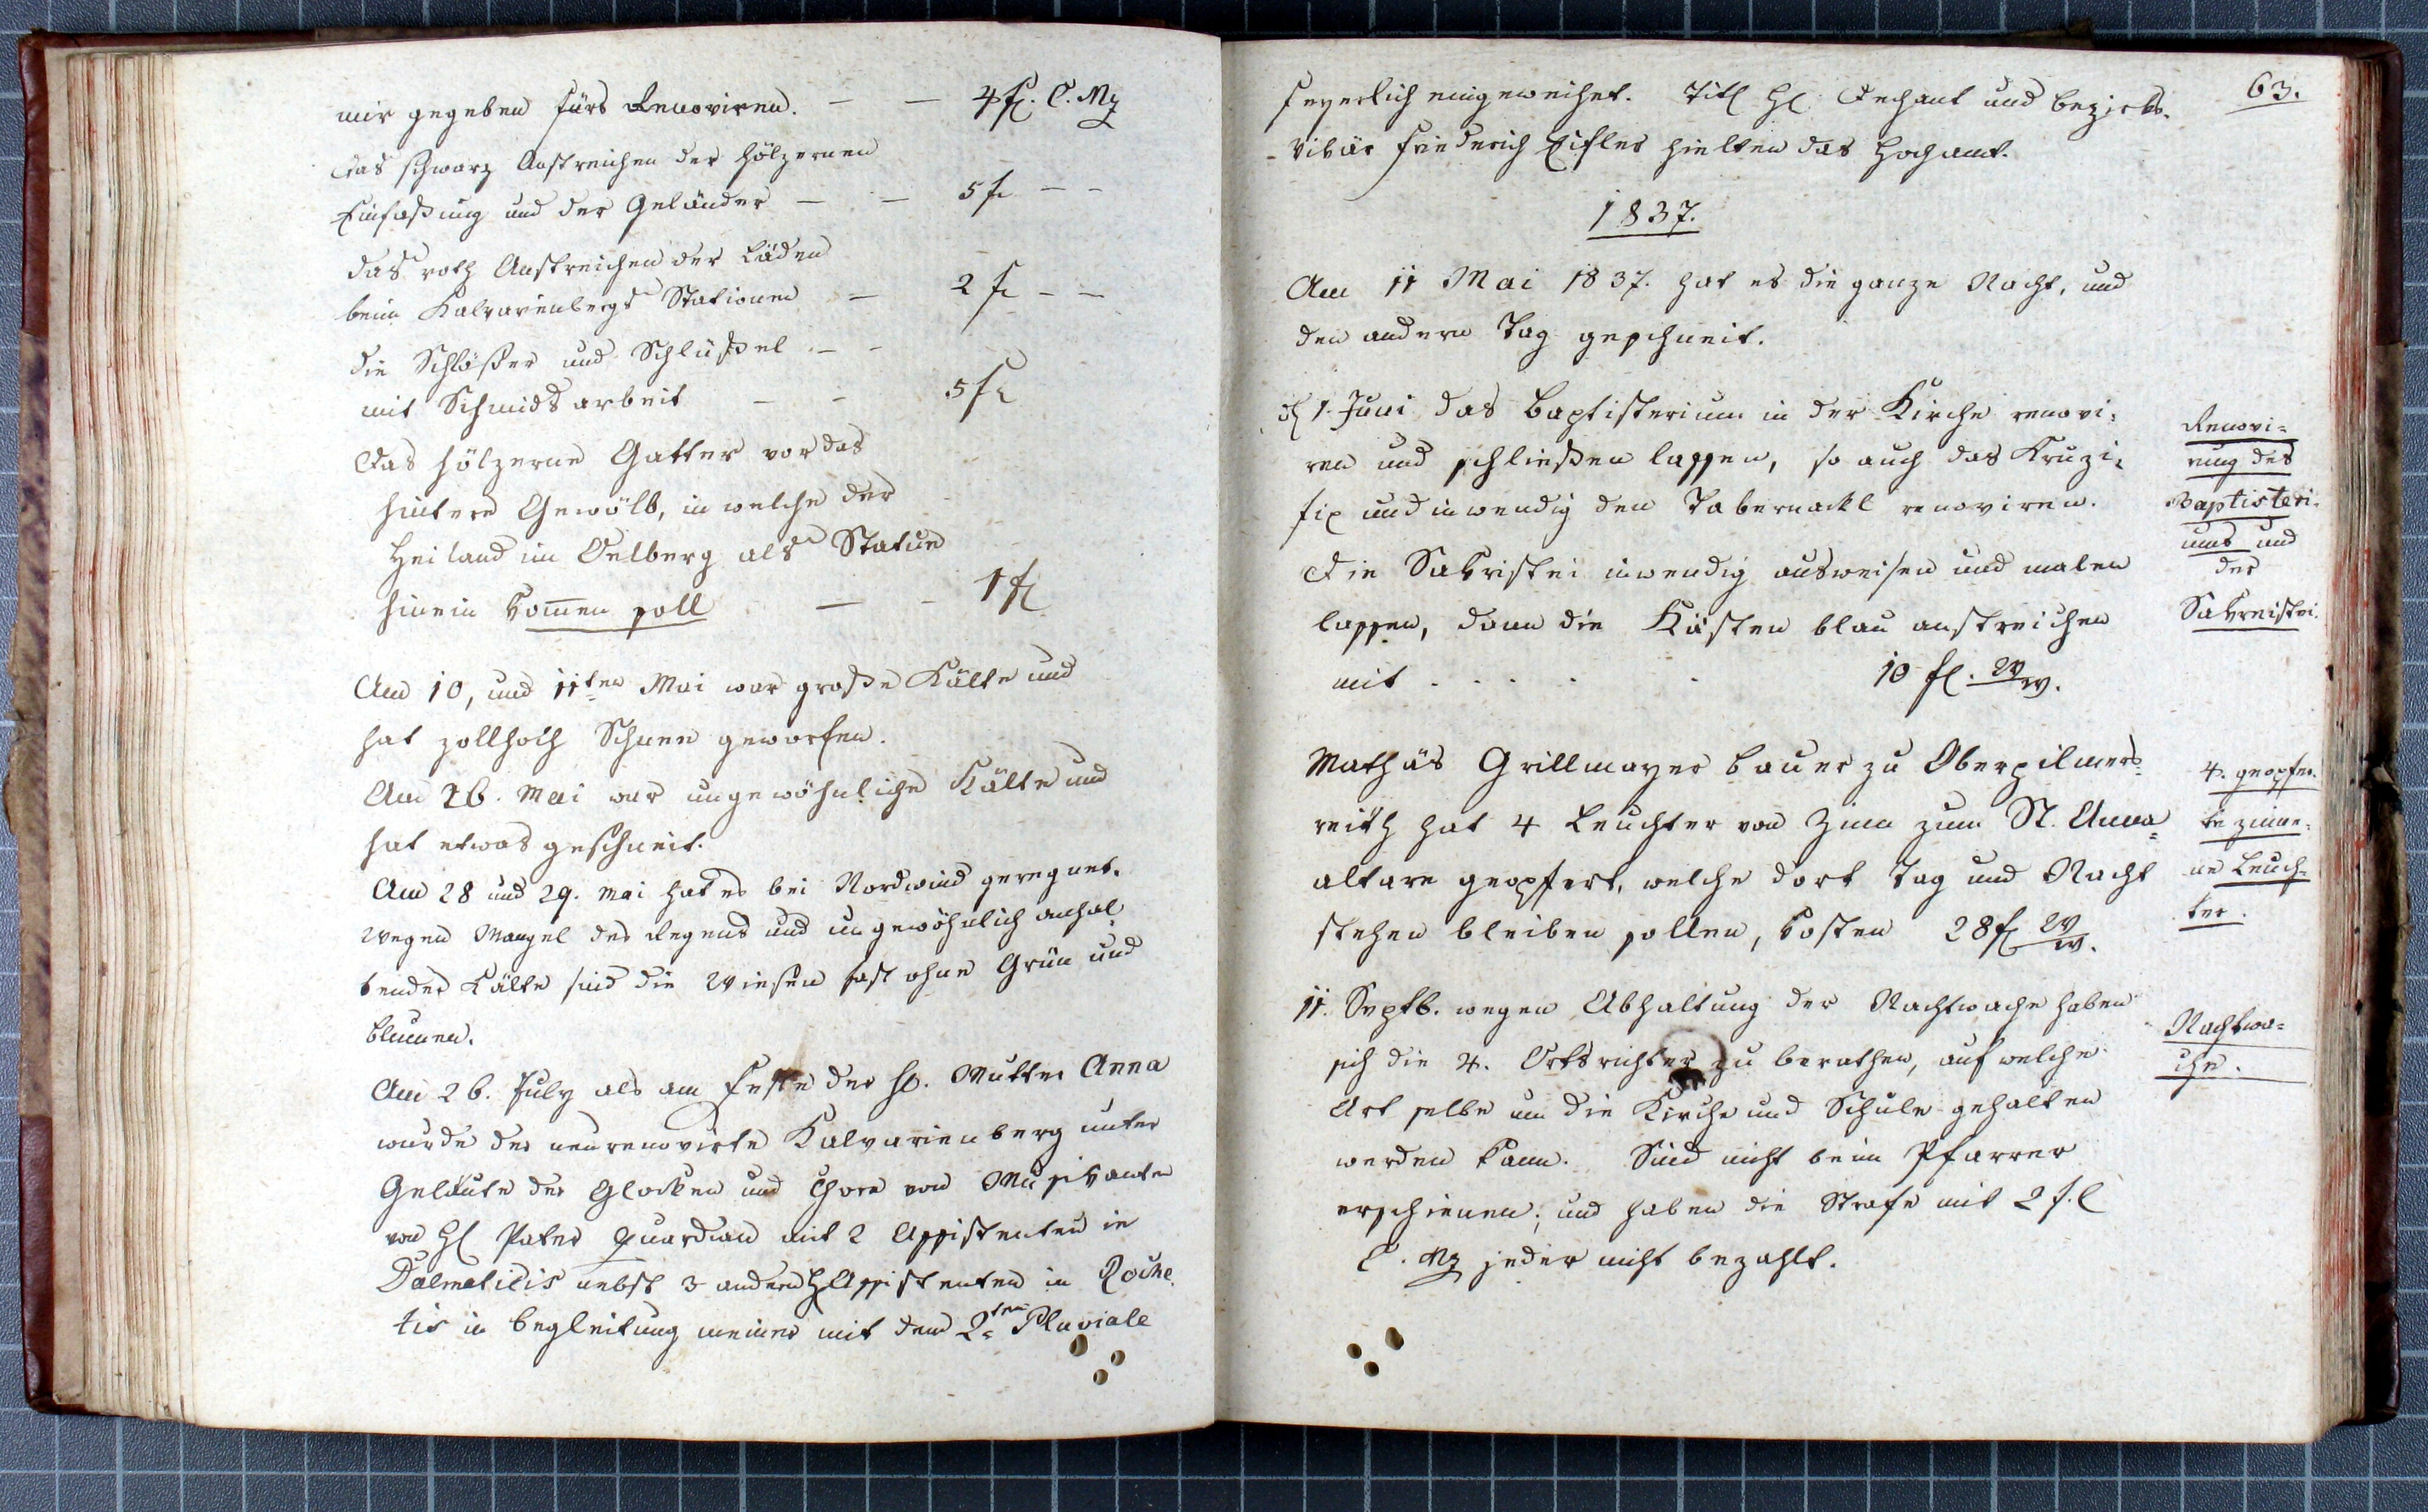 mir gegeben fürs Renoviren. — — 4 fl. C. Mz
Das schwarz Anstreichen der hölzernen
Einfaßung und der Geländer — — 5 fl — —
das roth Anstreichen der Läden
beim Kalvarienbergs Stationen — 2 fl — —
die Schlößer und Schlüßel — —
mit Schmidsarbeit — — 5 fl
Das hölzerne Gatter vor das
hintere Gewölb, in welche der
Heiland im Oelberg als Statue
hinein kom̅en soll — — 1 fl
Am 10, und 11ten Mai war große Kälte und
hat zollhoch Schnee geworfen.
Am 26. Mai war ungewöhnliche Kälte und
hat etwas geschneit.
Am 28 und 29. Mai hat es bei Nordwind geregnet.
Wegen Mangel des Regens und ungewöhnlich anhal¬
tender Kälte sind die Wiesen fast ohne Grün und
Blumen.
Am 26. July als am Feste der hl. Mutter Anna
wurde der neu renovirte Kalvarienberg unter
Geläute der Glocken und Chore von Musikanten
von H. Pater Quardian mit 2 Assistenten in
Dalmaticis nebst 3 andern H. Assistenten in Roche¬
tis in Begleitung meiner mit dem 2ten Pluviale
63.
feyerlich eingeweihet. Titl H. Dechant und Bezirks-
-Vikär Friedrich Eifler hielten das Hochamt.
1837.
Am 11 Mai 1837. hat es die ganze Nacht, und
den andern Tag geschneit.
d 1. Juni das Baptisterium in der Kirche renovi-
ren und schließen lassen, so auch das Kruzi-
fix und inwendig den Tabernackl renoviren.
Die Sakristei inwendig ausweisen und malen
lassen, dann die Kästen blau anstreichen
mit . . . . . 10 fl. W W.
Renovi=
rung des
Baptisteri-
ums und
der
Sakreistei.
Mathäs Grillmayer Bauer zu Oberzilmers-
reith hat 4 Leuchter von Zinn zum St. Anna=
altare geopfert, welche dort Tag und Nacht
stehen bleiben sollen, kosten 28 fl W W.
4. geopfer-
te zinne-
ne Leuch=
ter.
11. Septb. wegen Abhaltung der Nachtwache haben
sich die 4. Ortsrichter zu berathen, auf welche
Art selbe um die Kirche und Schule gehalten
werden kann. Sind nicht beim Pfarrer
erschienen; und haben die Strafe mit 2 f. l
C. Mz jeder nicht bezahlt.
Nachtwa=
che.